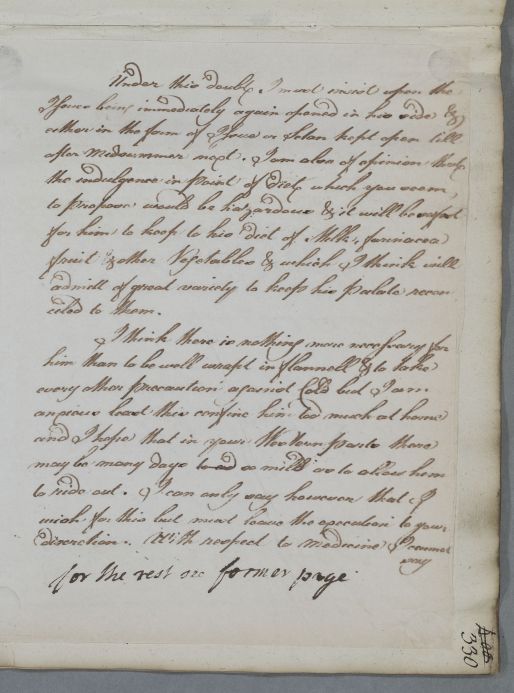 Under this doubt I must insist upon the
Issue being immediately again opened in his side &
either in the form of Issue or Setan kept open till
after Midsummer next. I am also of opinion that
the indulgence in point of Diet which you seem
to propose would be hazardous & it will be safest
for him to keep to his diet of Milk, farinacea
fruit & other Vegetables & which I think will
admitt of great variety to keep his Palate recon
ciled to them.
I think there is nothing more necessary for
him than to be well wrapt in flannell & to take
every other precaution against Cold but I am
anxious least this confine him too much at home
and I hope that in your Western parts there
may be many days so mild as to allow him
to ride out. I can only say however that I
wish for this but must leave the execution to your
discretion. With respect to medicine I cannot
say
for the rest see former page
330